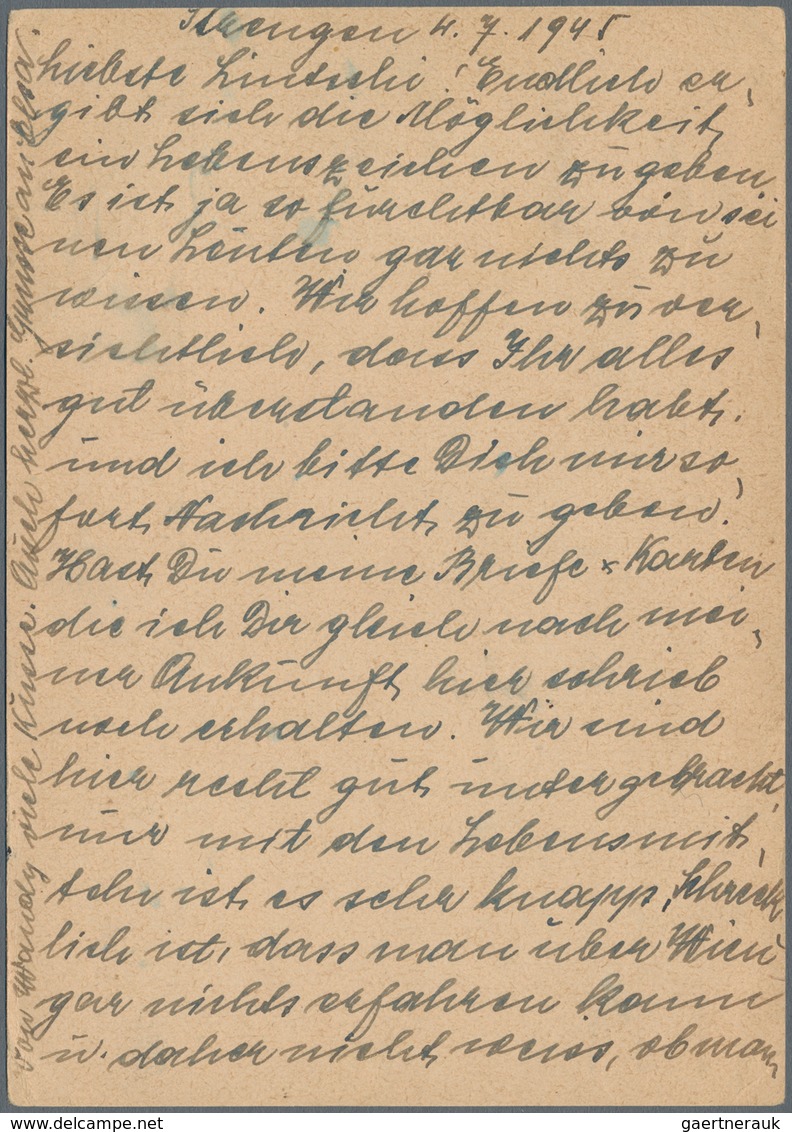 Strengen 4. 7. 1945
Liebste Lintschi! Endlich er-
gibt sich die Möglichkeit,
ein Lebenszeichen zu geben
Es ist ja so furchtbar von sei
nen Leuten gar nichts zu
wissen. Wir hoffen zuver-
sichtlich, dass Ihr alles
gut überstanden habt,
und ich bitte Dich mir so-
fort Nachricht zu geben.
Hast Du meine Briefe + Karten
die ich Dir gleich nach mei-
ner Ankunft hier schrieb
noch erhalten. Wir sind
hier recht gut untergebracht,
nur mit den Lebensmit-
teln ist es sehr knapp. Schreck
lich ist, dass man über Wien
gar nichts erfahren kann
u. daher nicht weiss, ob man
von Wandy viele Küsse. Auch herzl. Grüsse an Elsa.
gaertnerauk